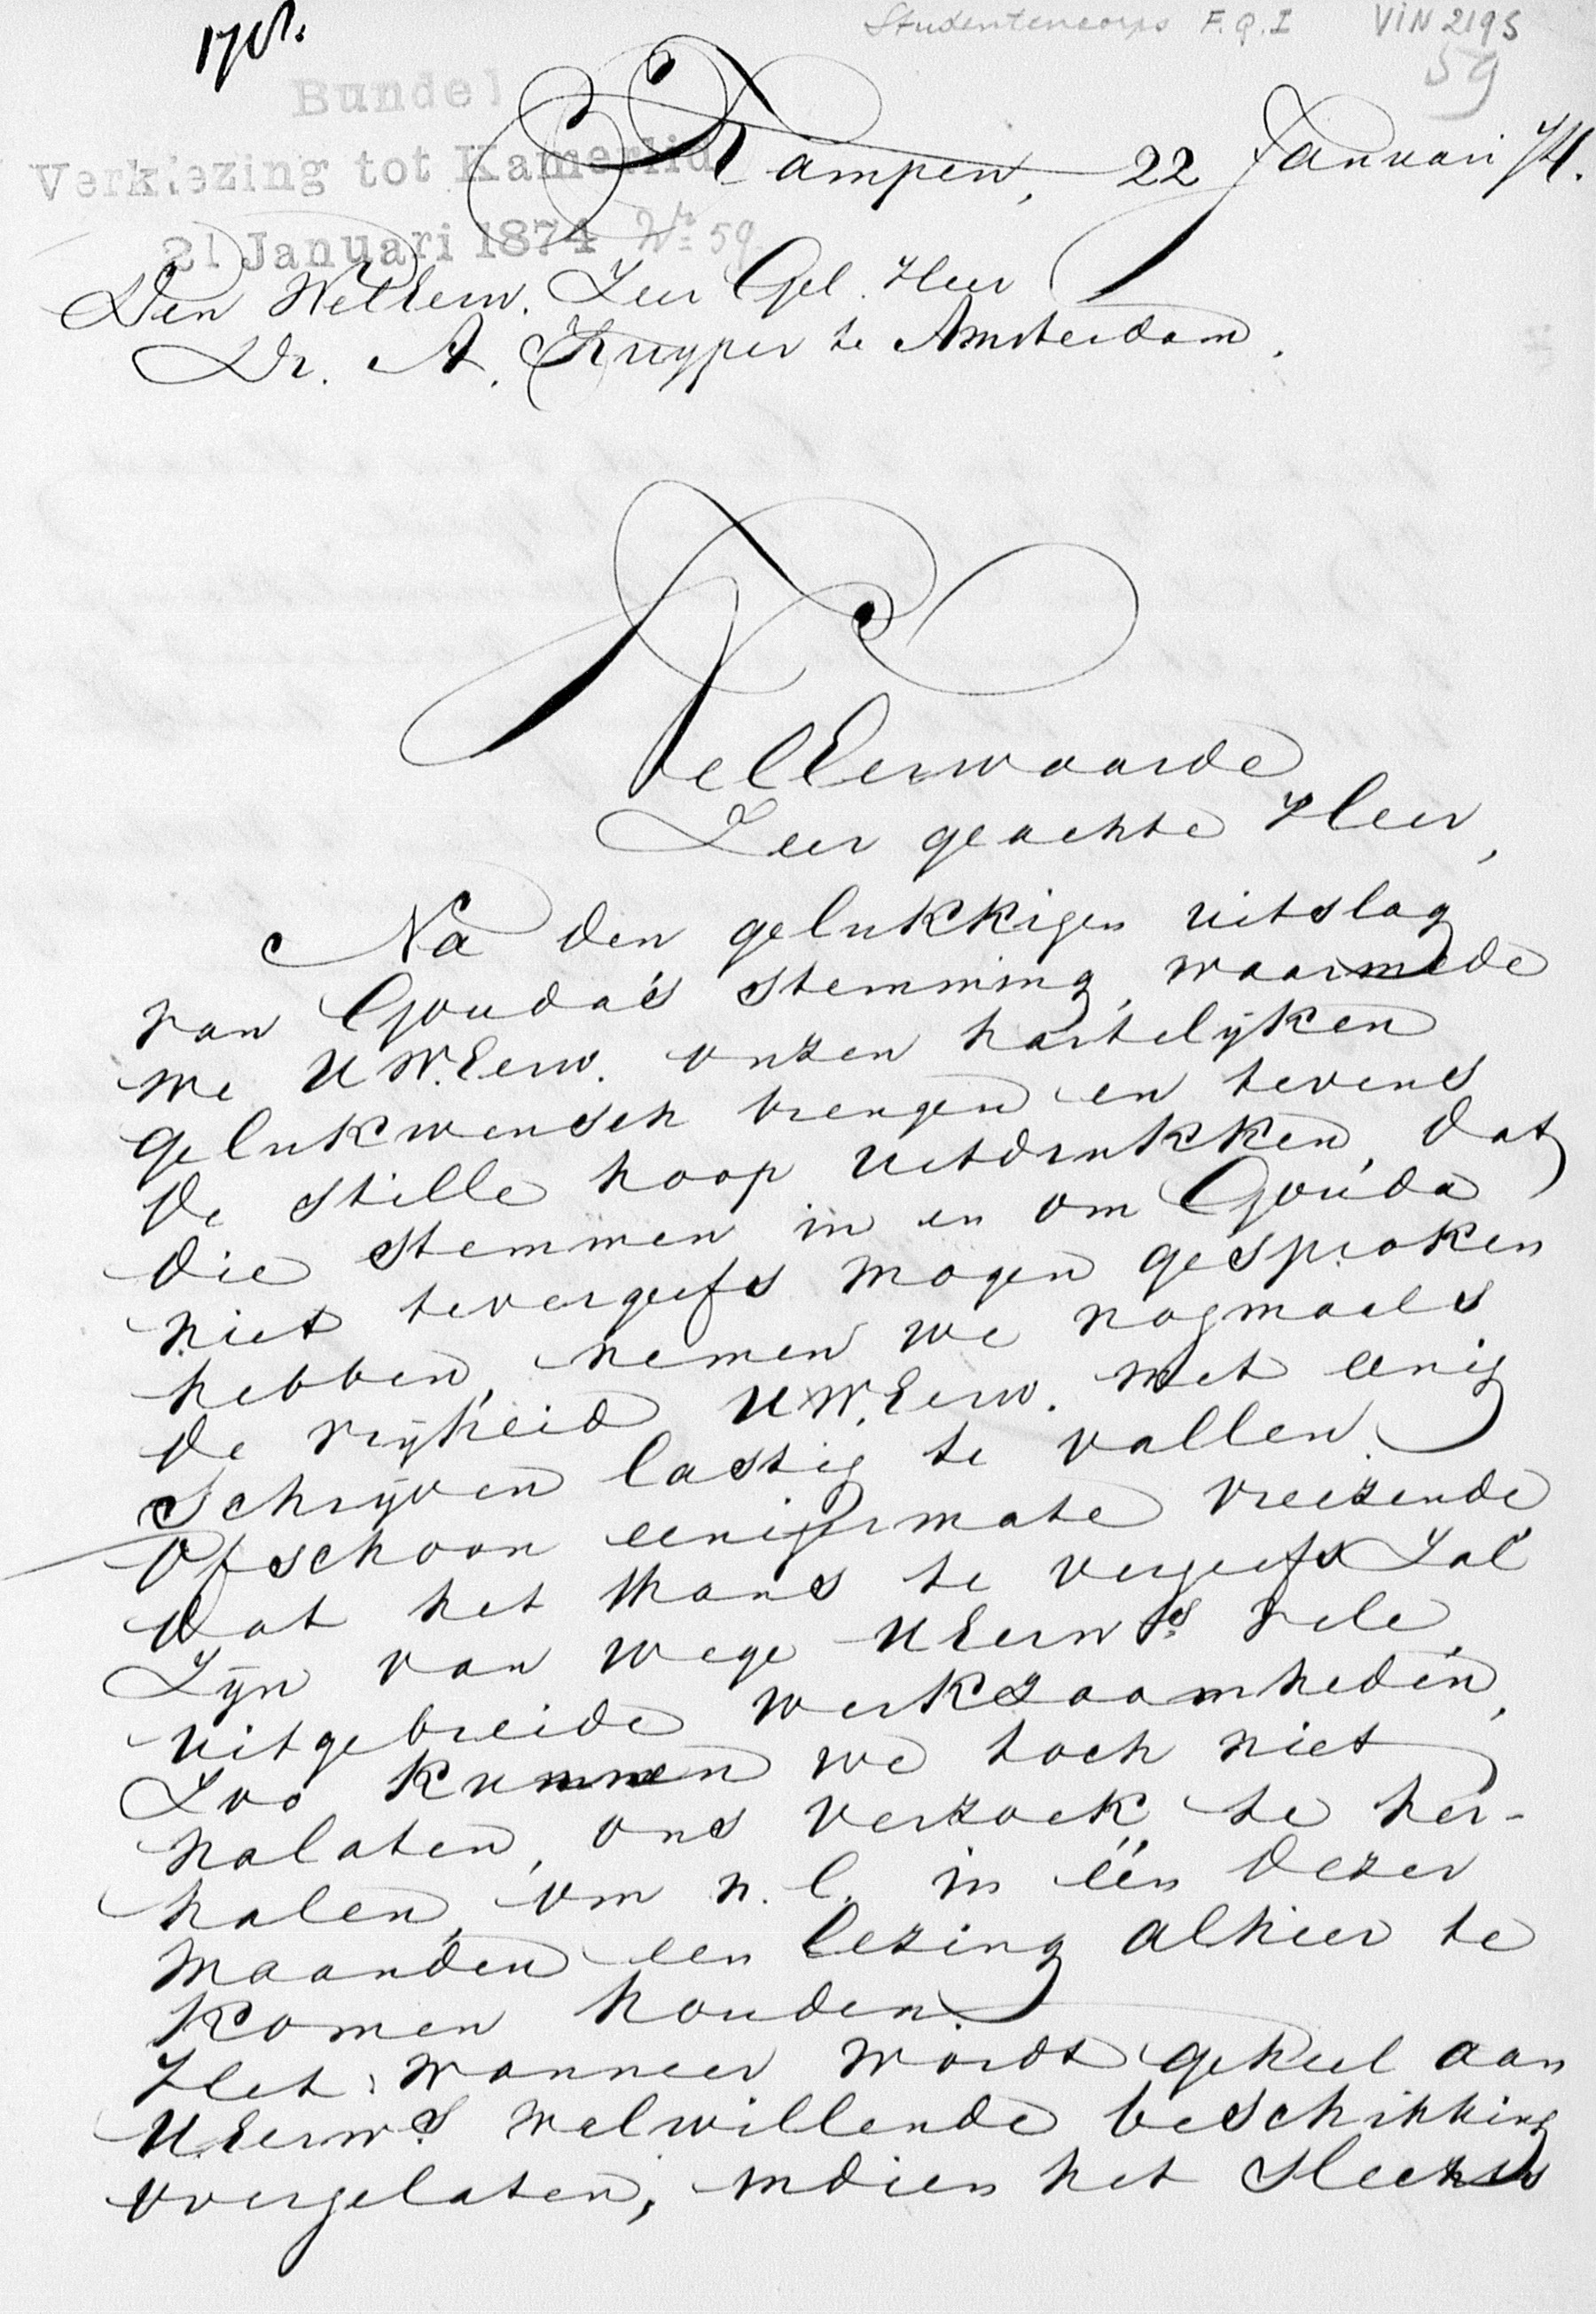 Studentencorps F.Q.I VIN 2195
59
Bundel
Verkiezing tot Kamerlid
21 Januari 1874 No 59
Kampen, 22 Januari /74.
Den WelEerw. Zeer Gel. Heer
Dr. A. Kuyper te Amsterdam.
WelEerwaarde
Zeer geachte Heer,
Na den gelukkigen uitslag
van Gouda's stemming, waarmede
we UW.Eerw. onzen hartelijken
gelukwensch brengen en tevens
de stille hoop uitdrukken, dat
die stemmen in en om Gouda
niet tevergeefs mogen gesproken
hebben, nemen we nogmaals
de vrijheid UW.Eerw. met eenig
schrijven lastig te vallen.
Ofschoon eenigermate vreezende
dat het thans te vergeefs zal
zijn van wege UEerws vele,
uitgebreide werkzaamheden,
zoo kunnen we toch niet
nalaten, ons verzoek te her-
halen, om n.l. in één dezer
maanden een lezing alhier te
komen houden.
Het: wanneer wordt geheel aan
UEerws welwillende beschikking
overgelaten, indien het slechts